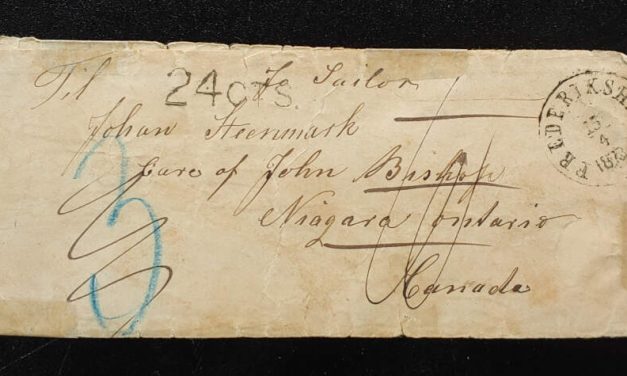 Til To Sailor
24 CTS.
Johan Steenmark
Care of John Bishop
Niagara Ontario
Canada
3
FREDERIKSH
4